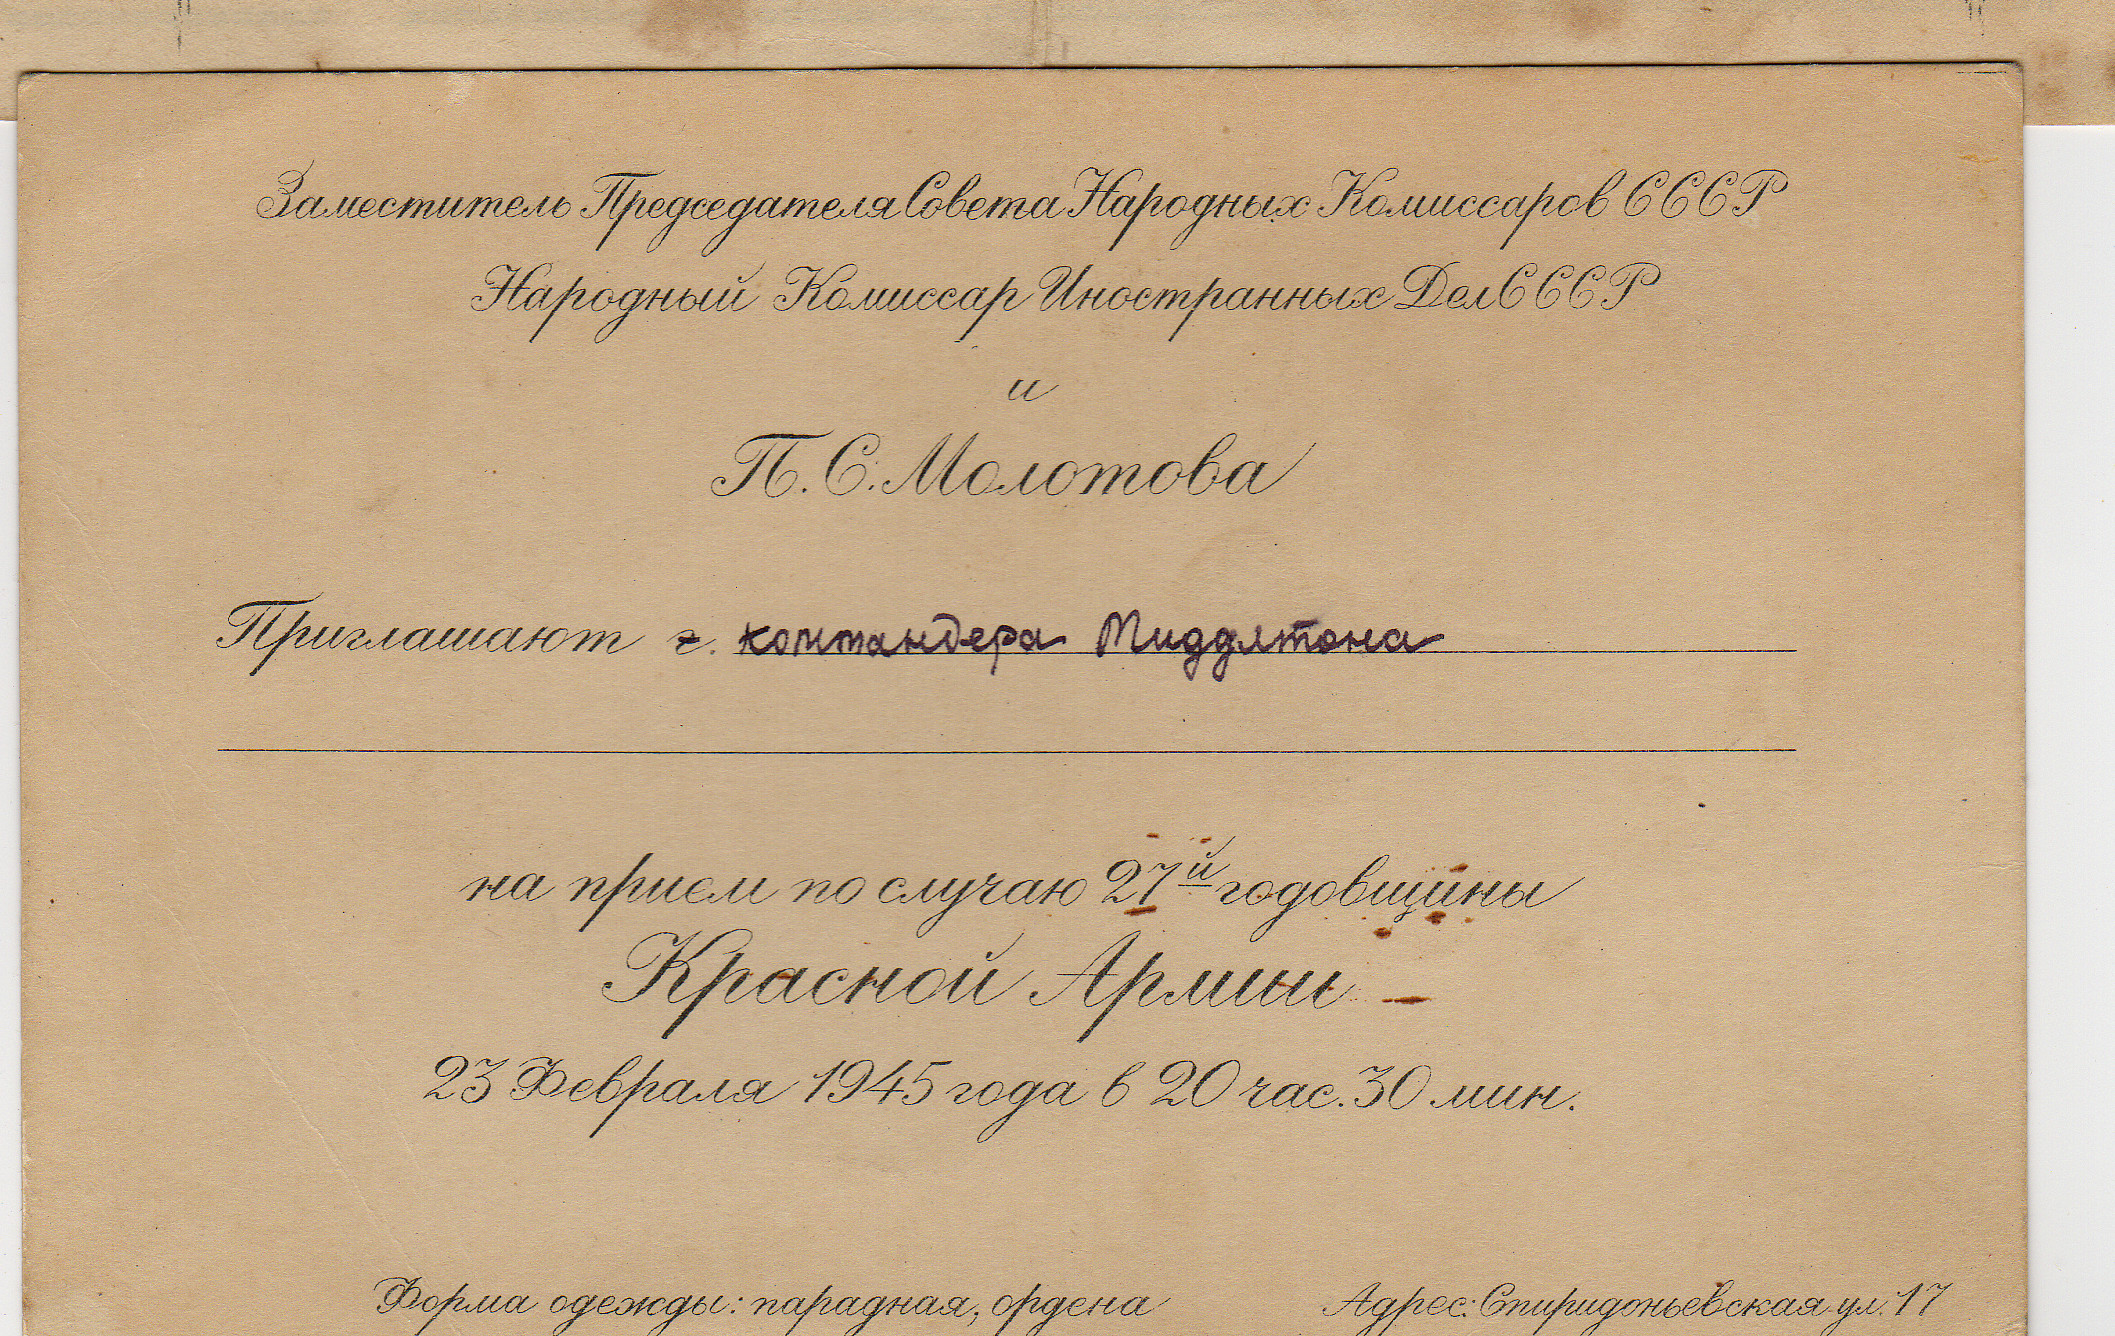 Заместитель Председателя Совета Народных Комиссаров СССР
Народный Комиссар Иностранных Дел СССР
и
П. С. Молотова
Приглашают г. коммандера Миддлтона
на прием по случаю 27й годовщины
Красной Армии
23 Февраля 1945 года в 20 час. 30 мин.
Форма одежды: парадная, ордена
Адрес: Спиридоньевская ул. 17